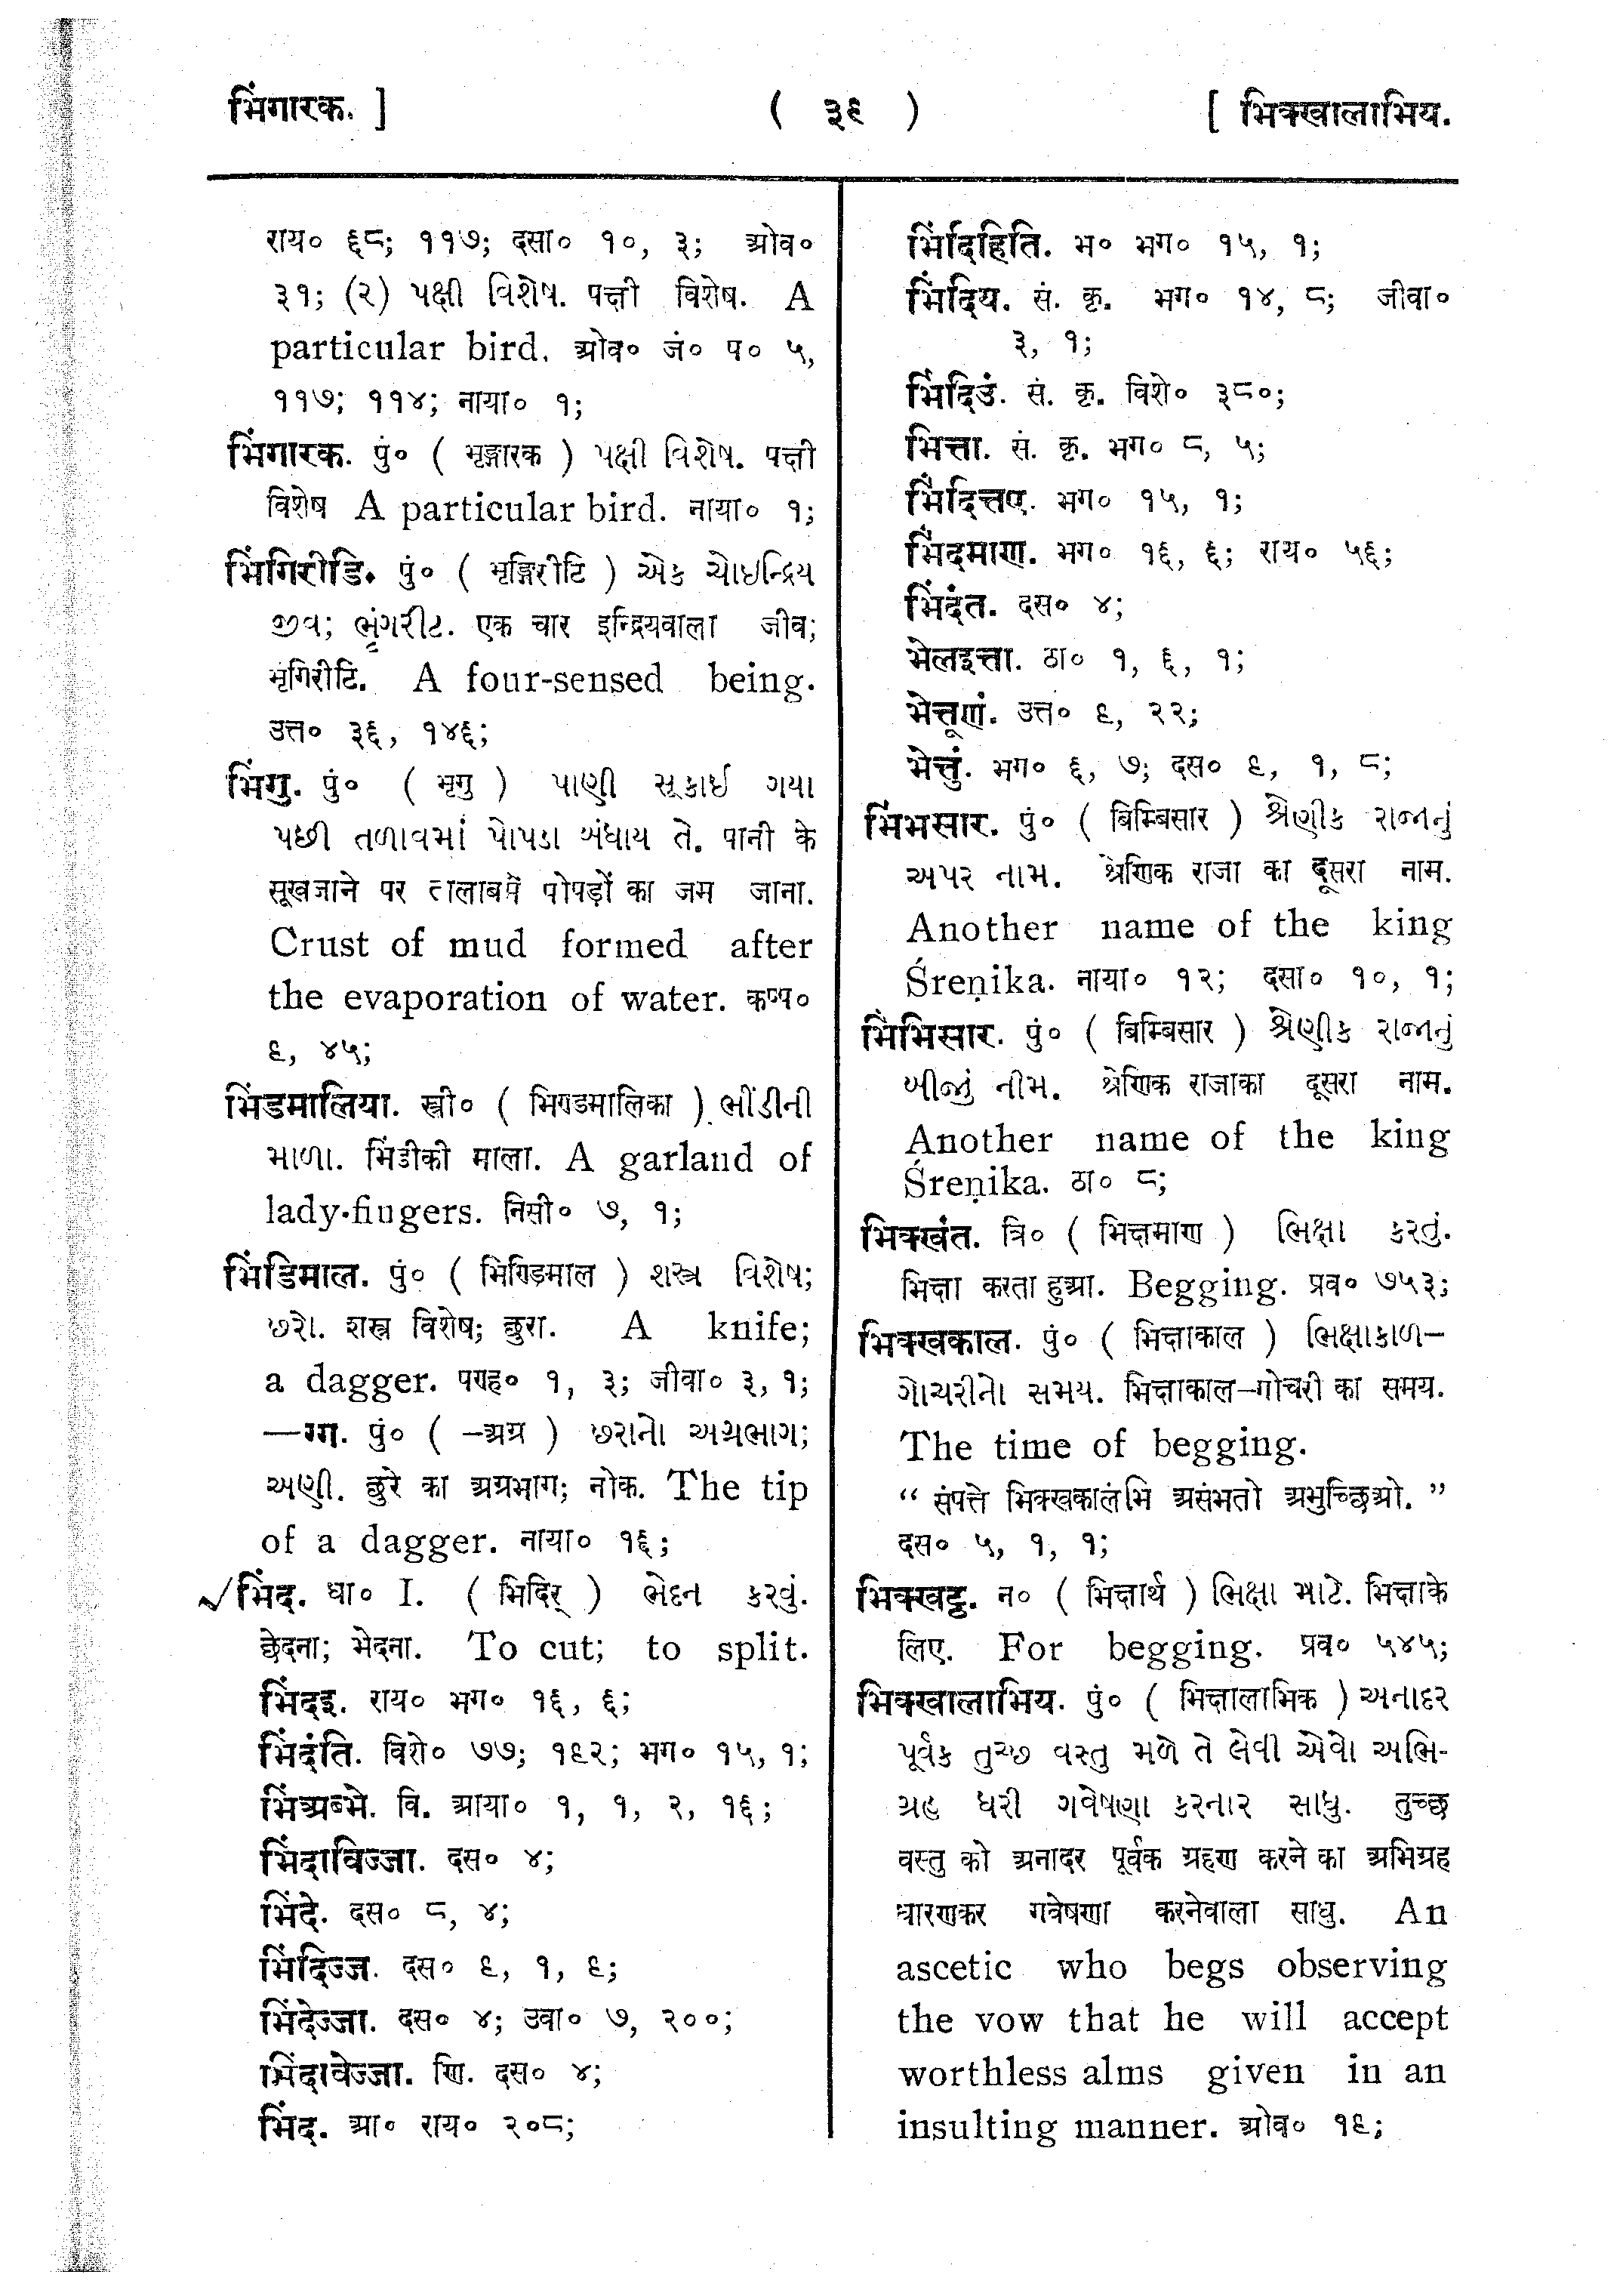 भिंगारक. ]
( ३९ )
[ भिक्खालाभिय.
राय० ६८; ११७; दसा० १०, ३; ओव०
३१; (२) પક્ષી વિશેષ. पक्षी विशेष. A
particular bird. ओव० जं० प० ५,
११७; ११४; नाया० १;
भिंगारक. पुं० ( भृङ्गारक ) પક્ષી વિશેષ. पक्षी
विशेष A particular bird. नाया० १;
भिंगिरीडि. पुं० ( भृङ्गिरीटि ) એક ચોઇન્દ્રિય
જીવ; ભૃંગરીટ. एक चार इन्द्रियवाला जीव;
भृंगिरीटि. A four-sensed being.
उत्त० ३६, १४६;
भिंगु. पुं० ( भृगु ) પાણી સૂકાઈ ગયા
પછી તળાવમાં પોપડા બંધાય તે. पानी के
सूखजाने पर तालाबमें पोपड़ों का जम जाना.
Crust of mud formed after
the evaporation of water. कप्प०
९, ४५;
भिंडमालिया. स्त्री० ( भिण्डमालिका ) ભીંડીની
માળા. भिंडीकी माला. A garland of
lady-fingers. निसी० ७, १;
भिंडिमाल. पुं० ( भिण्डिमाल ) શસ્ત્ર વિશેષ;
છરો. शस्त्र विशेष; छुरा. A knife;
a dagger. पण्ह० १, ३; जीवा० ३, १;
—ग्ग. पुं० ( -अग्र ) છરાનો અગ્રભાગ;
અણી. छुरे का अग्रभाग; नोक. The tip
of a dagger. नाया० १६;
√भिंद. धा० I. ( भिदिर् ) ભેદન કરવું.
छेदना; भेदना. To cut; to split.
भिंदइ. राय० भग० १६, ६;
भिंदंति. विशे० ७७; १९२; भग० १५, १;
भिंअब्भे. वि. आया० १, १, २, १६;
भिंदाविज्जा. दस० ४;
भिंदे. दस० ८, ४;
भिंदिज्ज. दस० ९, १, ९;
भिंदेज्जा. दस० ४; उवा० ७, २००;
भिंदावेज्जा. णि. दस० ४;
भिंद. आ० राय० २०८;
भिंदिहिति. भ० भग० १५, १;
भिंदिय. सं. कृ. भग० १४, ८; जीवा०
३, १;
भिंदिउं. सं. कृ. विशे० ३८०;
भित्ता. सं. कृ. भग० ८, ५;
भिंदित्तए. भग० १५, १;
भिंदमाण. भग० १६, ६; राय० ५६;
भिंदंत. दस० ४;
भेलइत्ता. ठा० १, ६, १;
भेत्तूणं. उत्त० ९, २२;
भेत्तुं. भग० ६, ७; दस० ९, १, ८;
भिंभसार. पुं० ( बिम्बिसार ) શ્રેણીક રાજાનું
અપર નામ. श्रेणिक राजा का दूसरा नाम.
Another name of the king
Śreṇika. नाया० १२; दसा० १०, १;
भिंभिसार. पुं० ( बिम्बिसार ) શ્રેણીક રાજાનું
બીજું નીમ. श्रेणिक राजाका दूसरा नाम.
Another name of the king
Śreṇika. ठा० ८;
भिक्खंत. त्रि० ( भिक्षमाण ) ભિક્ષા કરતું.
भिक्षा करता हुआ. Begging. प्रव० ७५३;
भिक्खकाल. पुं० ( भिक्षाकाल ) ભિક્ષાકાળ—
ગોચરીનો સમય. भिक्षाकाल—गोचरी का समय.
The time of begging.
“ संपत्ते भिक्खकालंमि असंभतो अभुच्छिओ. ”
दस० ५, १, १;
भिक्खट्ठ. न० ( भिक्षार्थ ) ભિક્ષા માટે. भिक्षाके
लिए. For begging. प्रव० ५४५;
भिक्खालाभिय. पुं० ( भिक्षालाभिक ) અનાદર
પૂર્વક તુચ્છ વસ્તુ મળે તે લેવી એવો અભિ-
ગ્રહ ધરી ગવેષણા કરનાર સાધુ. तुच्छ
वस्तु को अनादर पूर्वक ग्रहण करने का अभिग्रह
धारणकर गवेषणा करनेवाला साधु. An
ascetic who begs observing
the vow that he will accept
worthless alms given in an
insulting manner. ओव० १९;